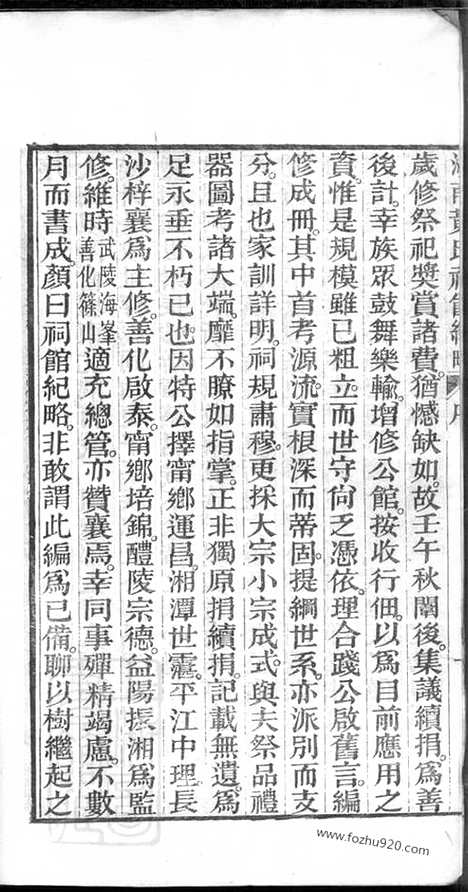 歲修祭祀獎賞諸費猶憾缺如故壬午秋闈後集議續捐爲善
後計幸族眾鼓舞樂輸增修公館按收行佃以爲目前應用之
資惟是規模雖已粗立而世守尙乏憑依理合踐公啟舊言編
修成冊其中首考源流實根深而蒂固提綱世系亦派別而支
分且也家訓詳明祠規肅穆更採大宗小宗成式與夫祭品禮
器圖考諸大端靡不瞭如指掌正非獨原捐續捐記載無遺爲
足永垂不朽已也因特公擇甯鄉運昌湘潭世霳平江中理長
沙梓襄爲主修善化啟泰甯鄉培錦醴陵宗德益陽振湘爲監
修維時武陵海峯善化篠山適充總管亦贊襄焉幸同事殫精竭慮不數
月而書成顏曰祠館紀略非敢謂此編爲已備聊以樹繼起之
www.fozhu920.com